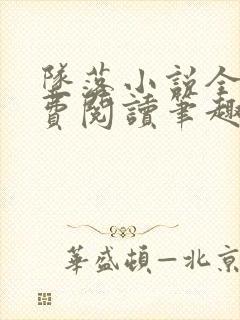 墜落小説全
費閱讀筆趣
華盛頓—北京